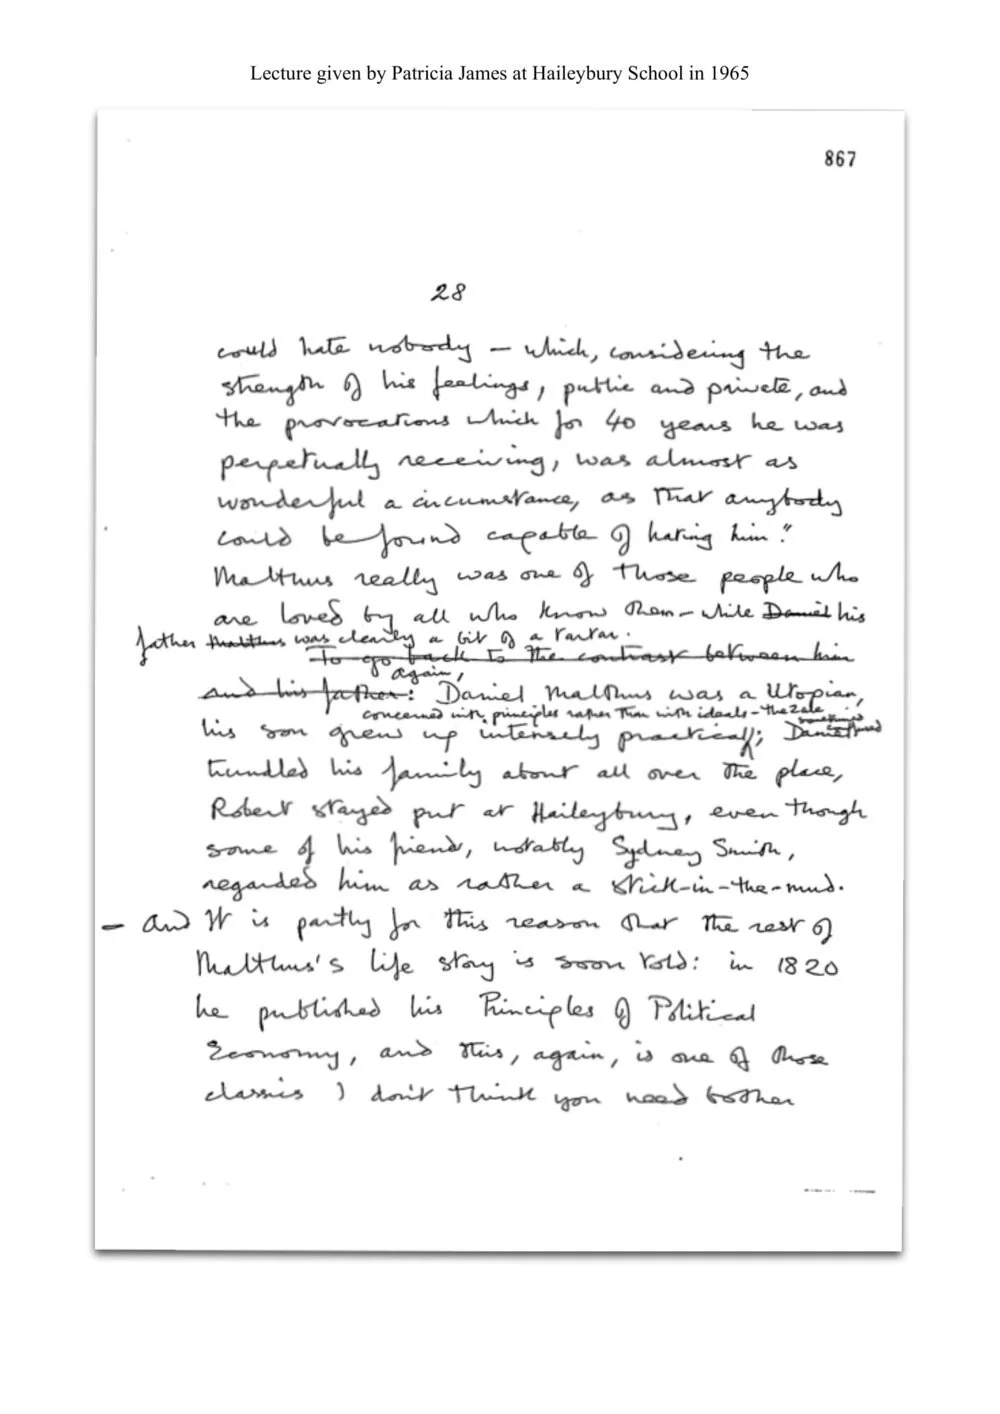 Lecture given by Patricia James at Haileybury School in 1965
867
28
could hate nobody – which, considering the
strength of his feelings, public and private, and
the provocations which for 40 years he was
perpetually receiving, was almost as
wonderful a circumstance, as that anybody
could be found capable of hating him."
Malthus really was one of those people who
are loved by all who know them – while Daniel his
father Malthus was clearly a bit of a tartar.
To go back to the contrast between him
again,
and his father: Daniel Malthus was a Utopian,
concerned with principles rather than with ideals – the
his son grew up intensely practical; Daniel
trundled his family about all over the place,
Robert stayed put at Haileybury, even though
some of his friends, notably Sydney Smith,
regarded him as rather a stick-in-the-mud.
– And It is partly for this reason that the rest of
Malthus's life story is soon told: in 1820
he published his Principles of Political
Economy, and this, again, is one of those
classics I don't think you need bother